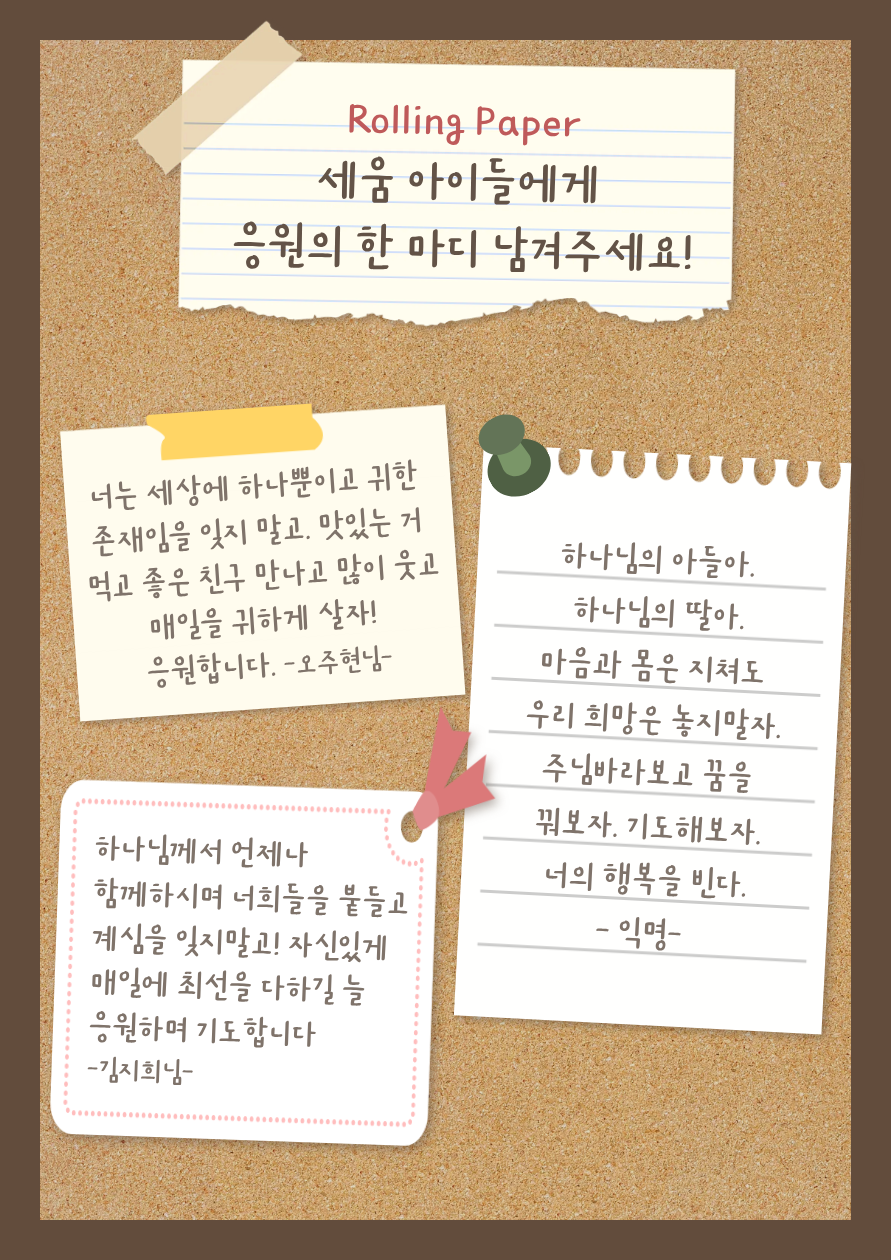 Rolling Paper
세움 아이들에게
응원의 한 마디 남겨주세요!
너는 세상에 하나뿐이고 귀한
존재임을 잊지 말고. 맛있는 거
먹고 좋은 친구 만나고 많이 웃고
매일을 귀하게 살자!
응원합니다. -오주현님-
하나님의 아들아.
하나님의 딸아.
마음과 몸은 지쳐도
우리 희망은 놓지말자.
주님바라보고 꿈을
꿔보자. 기도해보자.
너의 행복을 빈다.
- 익명-
하나님께서 언제나
함께하시며 너희들을 붙들고
계심을 잊지말고! 자신있게
매일에 최선을 다하길 늘
응원하며 기도합니다
-김지희님-